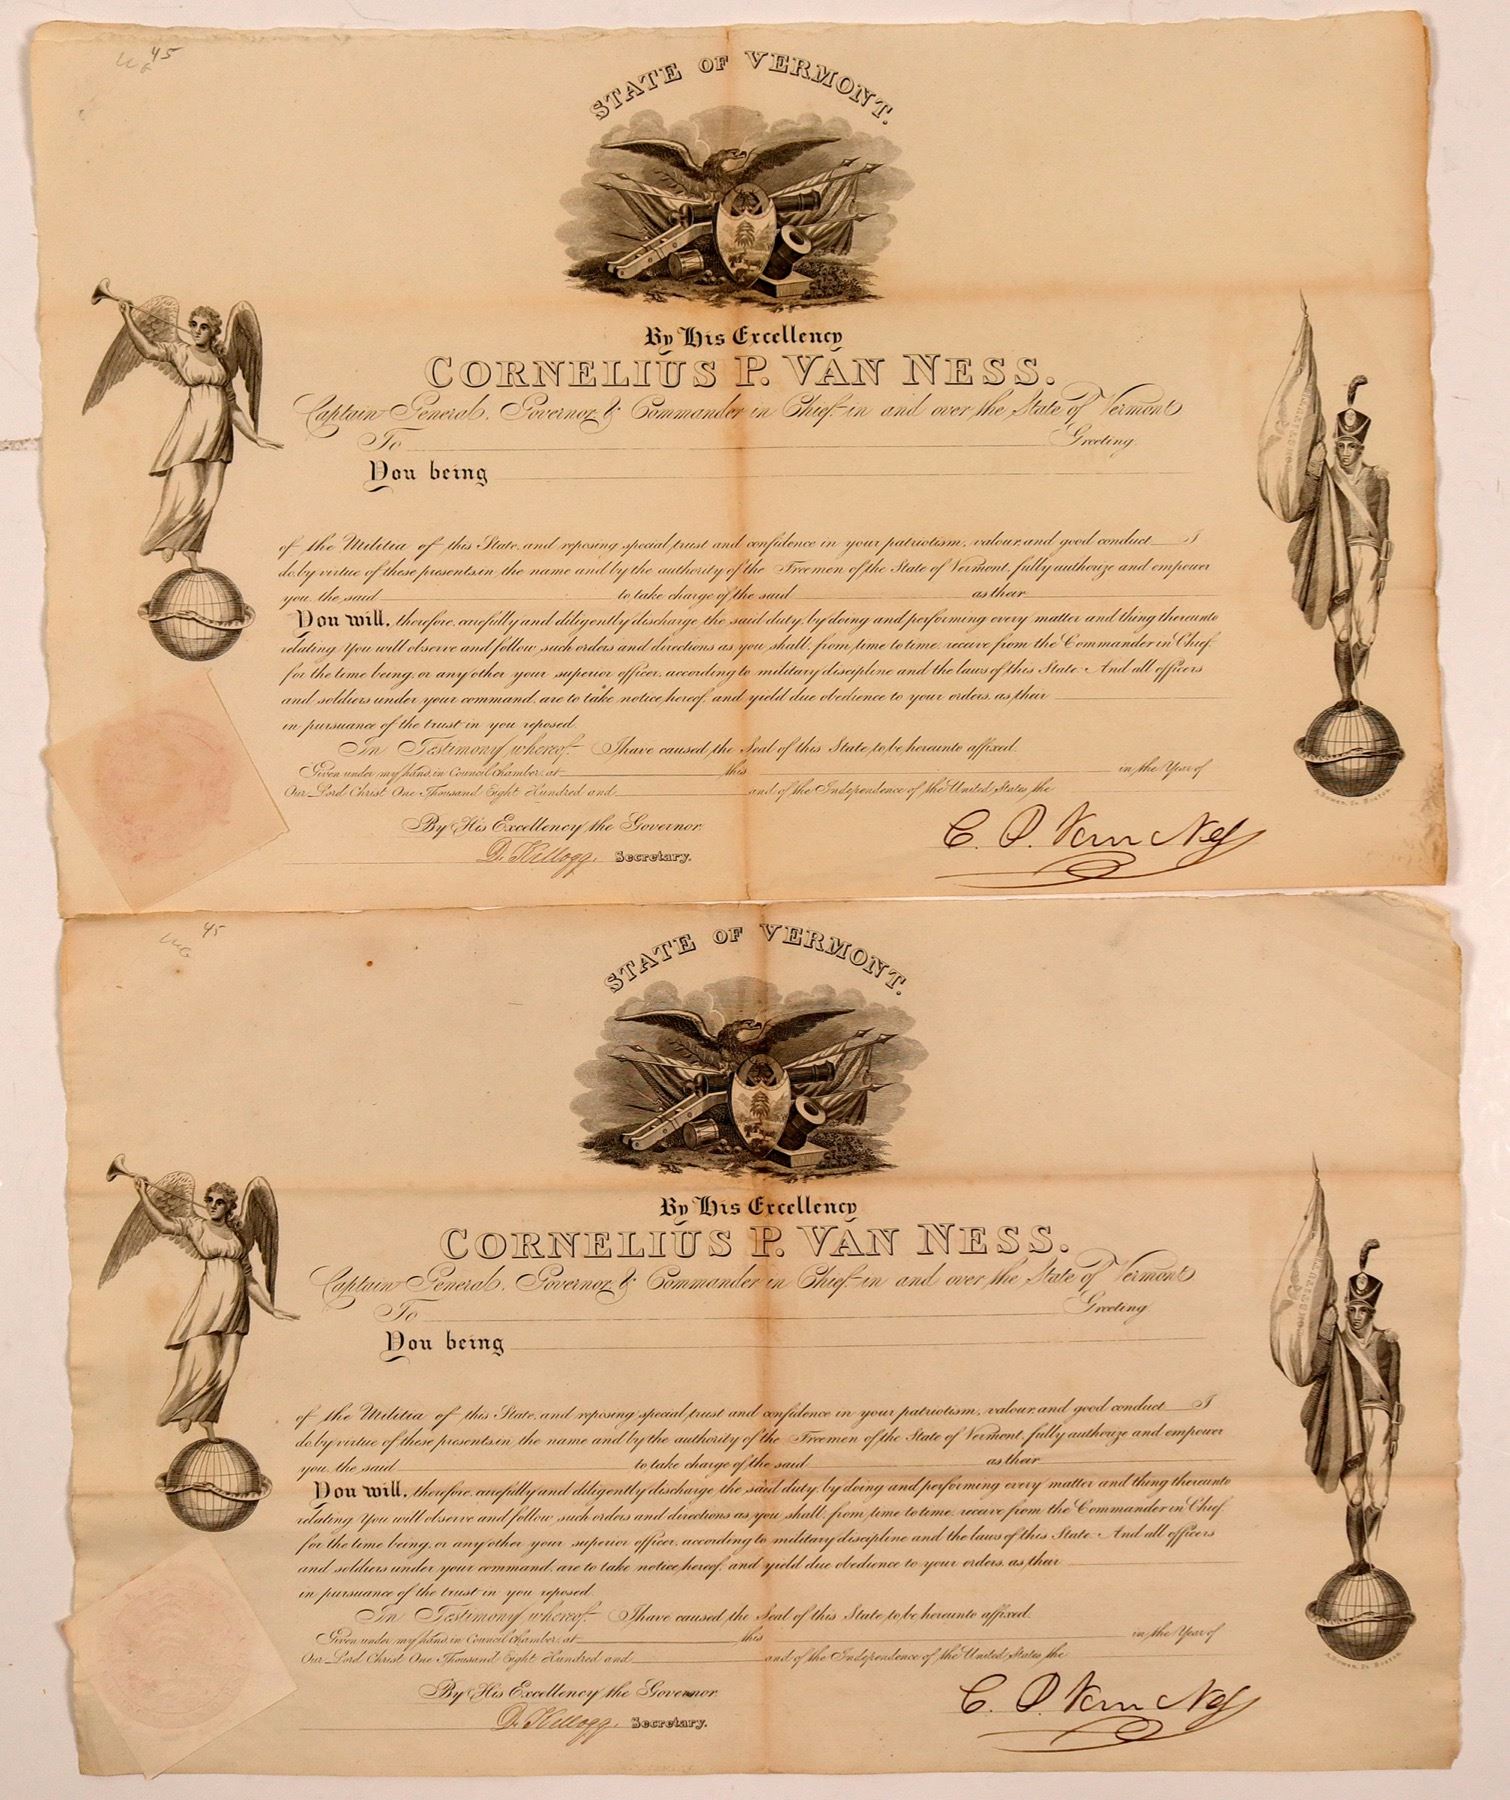 45
STATE OF VERMONT.
By His Excellency
CORNELIUS P. VAN NESS.
Captain General, Governor, & Commander in Chief in and over the State of Vermont
To Greeting.
You being
of the Militia of this State, and reposing special trust and confidence in your patriotism, valour, and good conduct I
do, by virtue of these presents, in the name and by the authority of the Freemen of the State of Vermont, fully authorize and empower
you, the said to take charge of the said as their
You will, therefore, carefully and diligently discharge the said duty, by doing and performing every matter and thing thereunto
relating. You will observe and follow such orders and directions as you shall, from time to time, receive from the Commander in Chief,
for the time being, or any other your superior officer, according to military discipline and the laws of this State. And all officers
and soldiers under your command, are to take notice hereof, and yield due obedience to your orders, as their
in pursuance of the trust in you reposed.
In Testimony whereof, I have caused the Seal of this State, to be hereunto affixed.
Given under my hand, in Council chamber, at this in the Year of
Our Lord Christ One Thousand Eight Hundred and and of the Independence of the United States, the
A. Bowen, Sc. Boston.
By His Excellency the Governor.
D. Kellogg, Secretary.
C. P. Van Ness
45
STATE OF VERMONT.
By His Excellency
CORNELIUS P. VAN NESS.
Captain General, Governor, & Commander in Chief in and over the State of Vermont
To Greeting.
You being
of the Militia of this State, and reposing special trust and confidence in your patriotism, valour, and good conduct I
do, by virtue of these presents, in the name and by the authority of the Freemen of the State of Vermont, fully authorize and empower
you, the said to take charge of the said as their
You will, therefore, carefully and diligently discharge the said duty, by doing and performing every matter and thing thereunto
relating. You will observe and follow such orders and directions as you shall, from time to time, receive from the Commander in Chief,
for the time being, or any other your superior officer, according to military discipline and the laws of this State. And all officers
and soldiers under your command, are to take notice hereof, and yield due obedience to your orders, as their
in pursuance of the trust in you reposed.
In Testimony whereof, I have caused the Seal of this State, to be hereunto affixed.
Given under my hand, in Council chamber, at this in the Year of
Our Lord Christ One Thousand Eight Hundred and and of the Independence of the United States, the
A. Bowen, Sc. Boston.
By His Excellency the Governor.
D. Kellogg, Secretary.
C. P. Van Ness